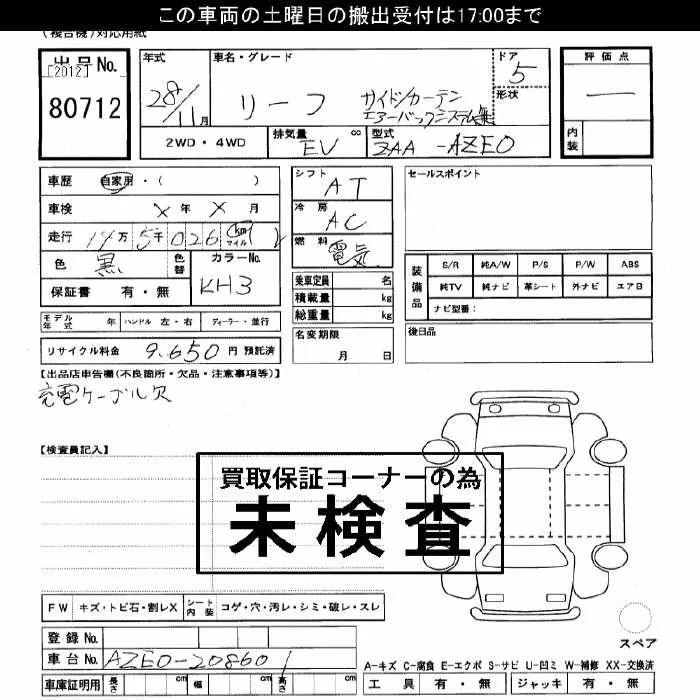 この車両の土曜日の搬出受付は17:00まで
(複合機)対応用紙
出品No.
[2012]
80712
年式
28/11月
車名・グレード
リーフ
サイド/カーテン
エアーバックシステム無
ドア
5
形状
評価点
内装
2WD・4WD
排気量 cc
EV
型式
ZAA-AZEO
車歴 自家用・( )
車検 X年 X月
走行 14万5千026 km マイル
色 黒
色替
カラーNo.
KH3
保証書 有・無
シフト
AT
冷房
AC
燃料
電気
乗車定員 名
積載量 kg
総重量 kg
名変期限
月 日
セールスポイント
装備品
S/R 純A/W P/S P/W ABS
純TV 純ナビ 革シート 外ナビ エアB
ナビ型番:
後日品
モデル年式 年 ハンドル 左・右 ディーラー・並行
リサイクル料金 9.650 円 預託済
【出品店申告欄(不良箇所・欠品・注意事項等)】
充電ケーブル欠
【検査員記入】
買取保証コーナーの為
未検査
FW キズ・トビ石・割レX シート内装 コゲ・穴・汚レ・シミ・破レ・スレ
登録No.
車台No. AZEO-208601
車庫証明用 長さ cm 幅 cm 高さ cm
スペア
A-キズ C-腐食 E-エクボ S-サビ U-凹ミ W-補修 XX-交換済
工具 有・無 ジャッキ 有・無